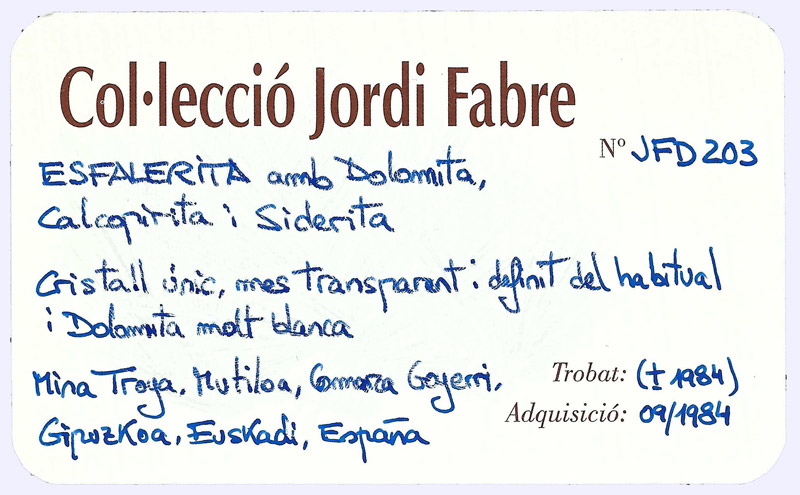 Col·lecció Jordi Fabre
Nº JFD203
ESFALERITA amb Dolomita,
Calcopirita i Siderita
Cristall únic, mes transparent i definit del habitual
i Dolomita molt blanca
Mina Troya, Mutiloa, Comarca Goyerri,
Gipuzkoa, Euskadi, España
Trobat: († 1984)
Adquisició: 09/1984